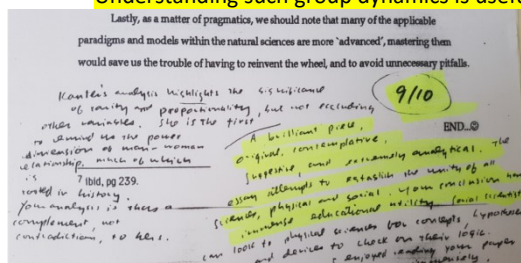 Understanding such group dynamics is usef
Lastly, as a matter of pragmatics, we should note that many of the applicable
paradigms and models within the natural sciences are more 'advanced', mastering them
would save us the trouble of having to reinvent the wheel, and to avoid unnecessary pitfalls.
Kanter's analysis highlights the significance
of rarity and proportionality, but not excluding
other variables. She is the first
to remind us the power
dimension of man-woman
relationship, much of which
is
rooted in history.
Your analysis is thus a
complement, not
contradictions, to hers.
9/10
END...☺
7 Ibid, pg 239.
A brilliant piece,
original, contemplative,
suggestive, and extremely analytical. The
essay attempts to establish the unity of all
sciences, physical and social. Your conclusion has
immense educational utility. Social scientists
can look to physical sciences for concepts, hypotheses
and devices to check on their logic.
I enjoyed reading your paper
immensely.